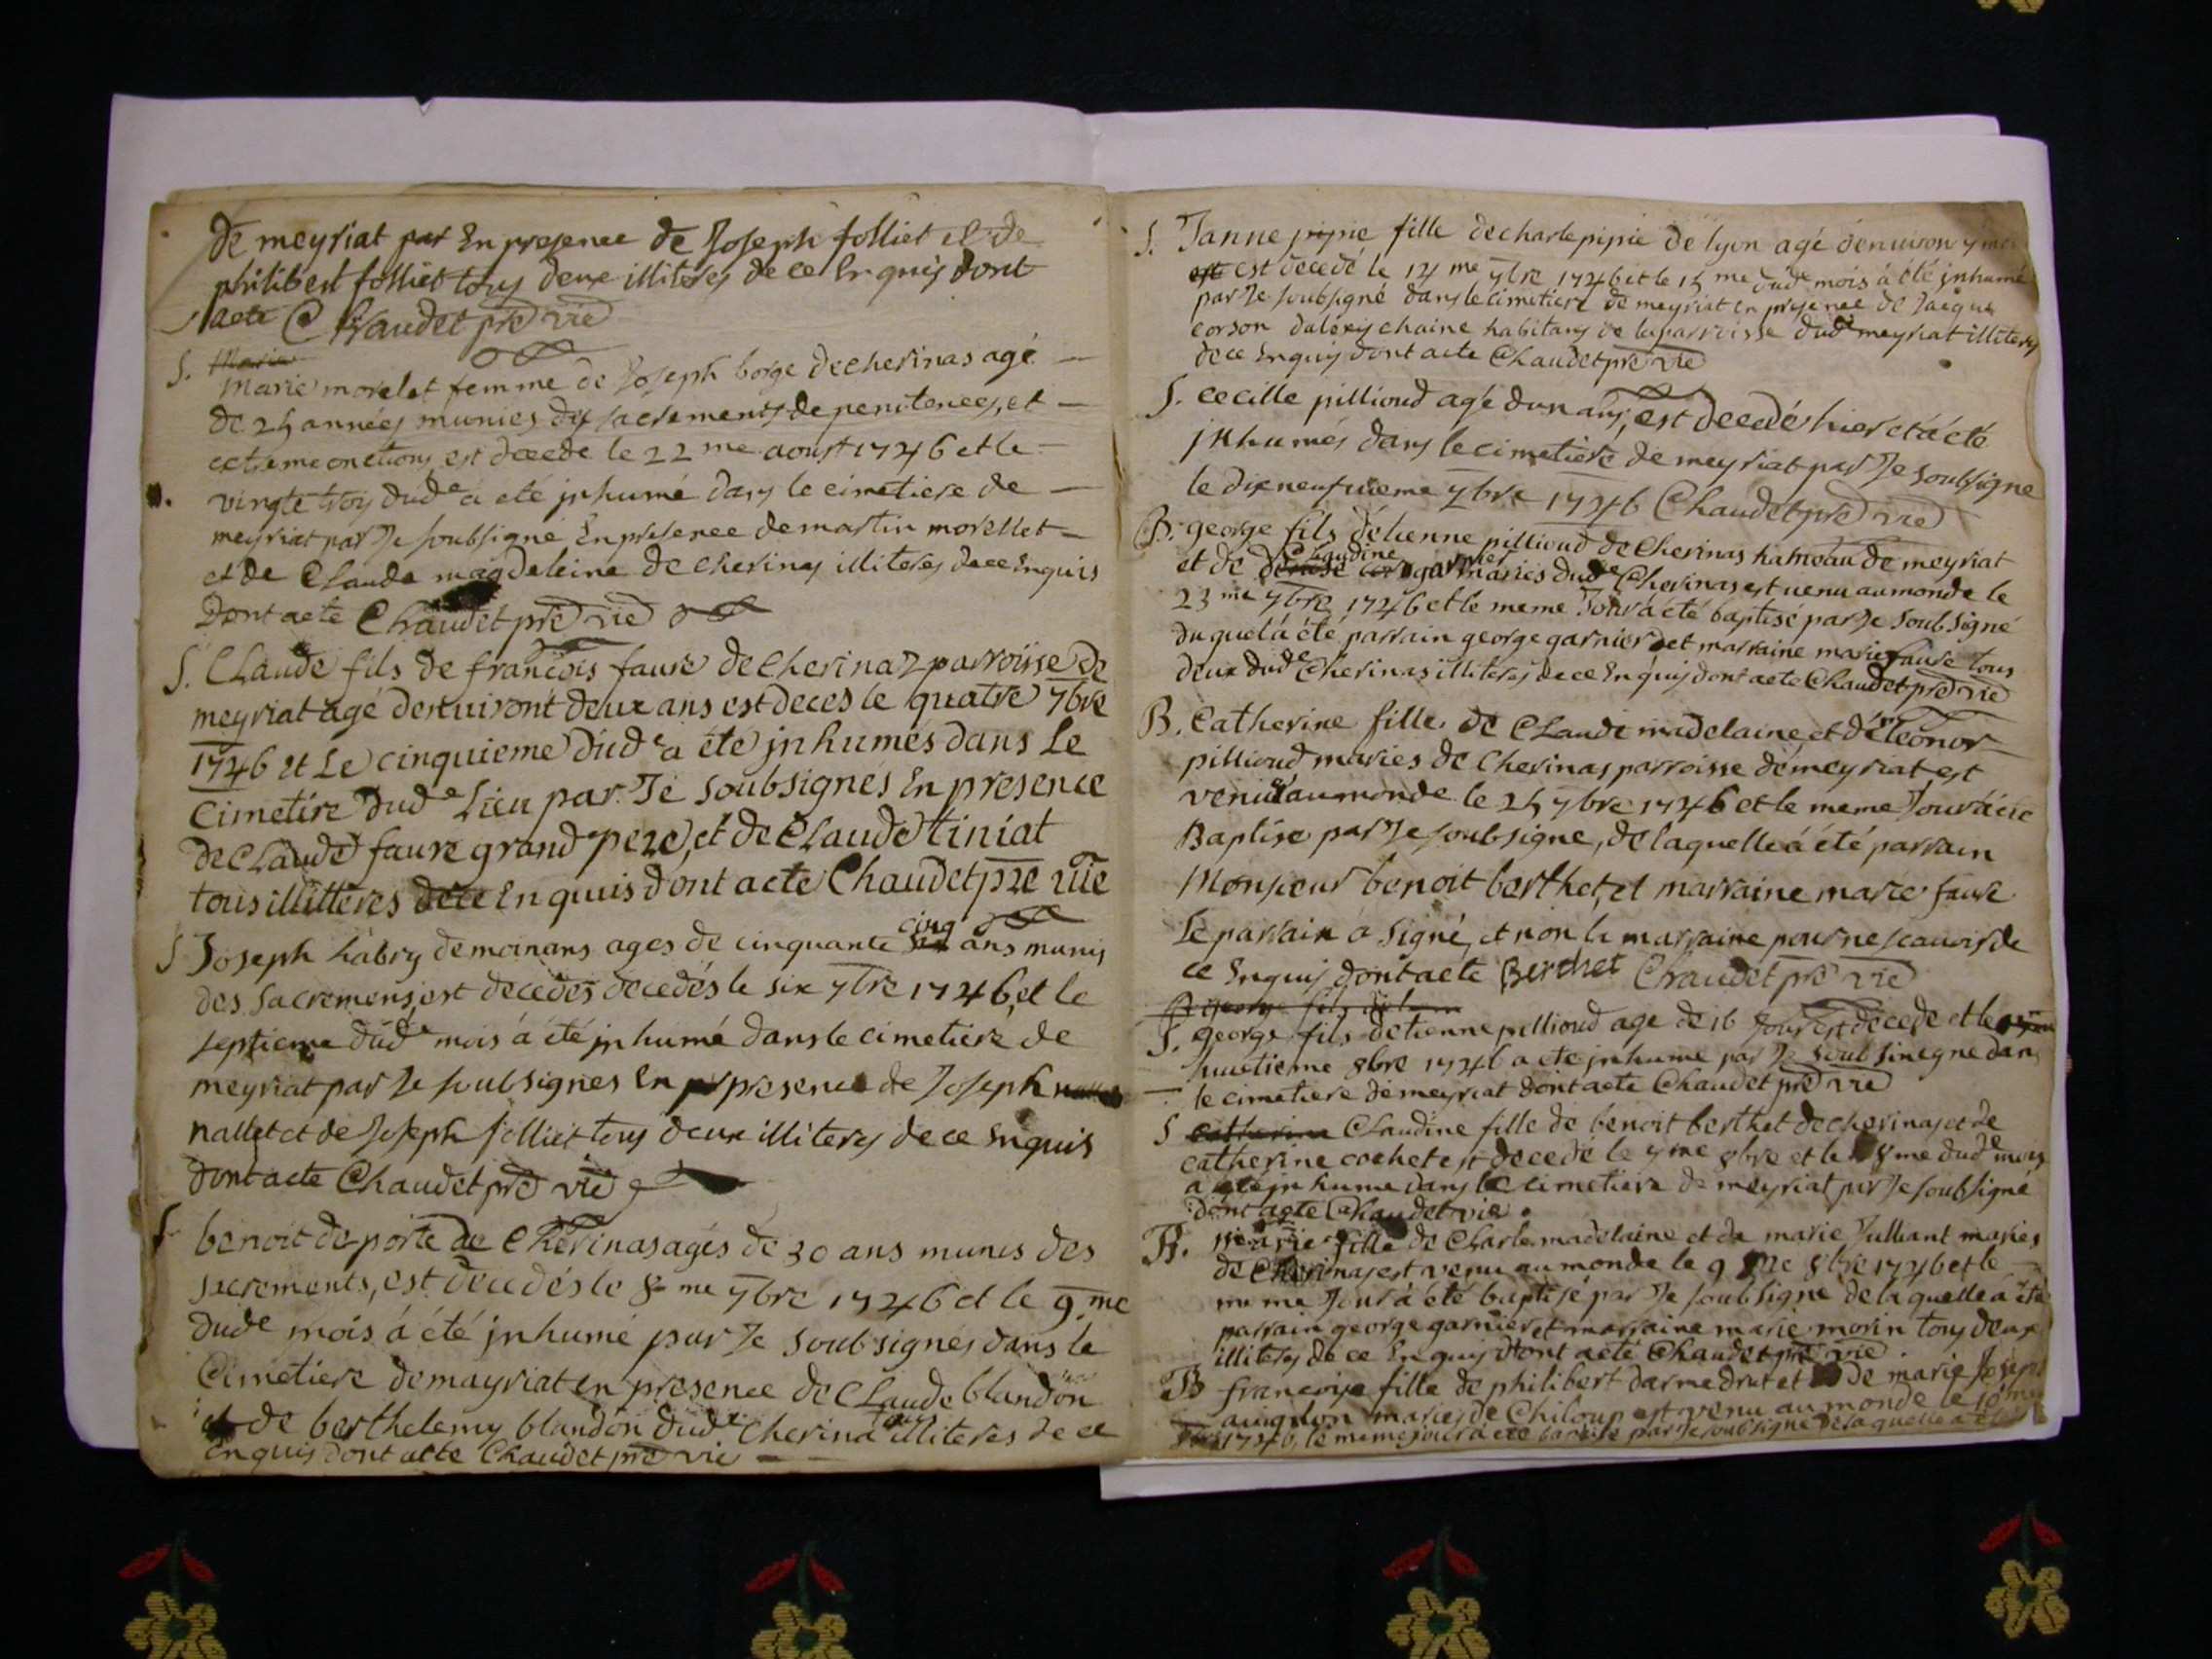 de meyriat par En presence de Joseph folliet et de
philibert folliet tous deux illiteres de ce Enquis dont
acte Chaudet pre vié
S. Marie
Marie morelet femme de Joseph borge decherinas agé
de 25 années munies des sacrements de penitences, et
extreme onctions est decede le 22 me aoust 1746 et le
vingte trois dude a eté jnhumé dans le cimetiere de
meyriat par Je soubsigné En presence demartin morellet
et de Claude magdeleine de cherinas illiteres de ce Enquis
Dont acte Chaudet pre vié
S. Claude fils de francois faure de Cherinaz parroisse de
meyriat agé denuiront deux ans est deces le quatre 7bre
1746 et Le cinquieme dude a éte jnhumés dans Le
Cimetire dude Lieu par Je Soubsignés En presence
de Claude faure grand pere, et de Claude tiniat
tous illitteres dece Enquis dont acte Chaudet pre vié
S Joseph habry demeinans ages de cinquante cinq ans munis
des Sacremens, est decedes decedés le six 7bre 1746, et le
septieme dude mois á été jnhumé dans le cimetiere de
meyriat par Je soubsignes En presence de Joseph
nallet et de Joseph folliet tous deux illiteres de ce Enquis
dont acte Chaudet pre vié
S benoit deporte de Cherinas agés de 30 ans munis des
sacrements, est decedés le 8 me 7bre 1746 et le 9 me
dude mois á été jnhumé par Je soubsignés dans le
Cimetiere demayriat en presence de Claude blandon
et de berthelemy blandon dude Cherina tous illiteres de ce
Enquis dont acte Chaudet pre vié
S. Janne pipie fille de charle pipie de lyon agé denuiron 7
est est decedé le 14 me 7bre 1746 et le 15 me dude mois á été jnhumé
par Je soubsigné dans le cimetiere de meyriat en presence de Jacque
corson dalexis chaine habitans de la parroisse dude meyriat illiteres
de ce Enquis dont acte Chaudet pre vié
S. Cecille pillioud agé dun ans, est decedés hier et á eté
jnhumés dans le cimetiere de meyriat par Je soubsigne
le dixneufuieme 7bre 1746 Chaudet pre vié
B. george fils détienne pillioud de Cherinas hameau de meyriat
et de Claudine garnier mariés dude Cherinas est uenu au monde le
23 me 7bre 1746 et le meme Jour á été baptisé par Je soubsigné
duquel á été parrain george garnier et marraine marie faure tous
deux dude Cherinas illiteres de ce Enquis dont acte Chaudet pre vié
B. Catherine fille de Claude madelaine et déleonor
pillioud maries de Cherinas parroisse de meyriat est
venué au monde le 25 7bre 1746 et le meme Jour á éte
Baptise par Je soubsigne, de laquelle á été parrain
Monsieur benoit berthet, et marraine marie faure
Le parrain a signé, et non la marraine pour ne scauoir de
ce Enquis dont acte Berthet Chaudet pre vié
B george fils detien
S. george fils detienne pillioud age de 16 Jour est decede et le
huictieme 8bre 1746 a ete jnhume par Je soubsinegne dans
le cimetiere demeyriat dont acte Chaudet pre vié
S catherina Claudine fille de benoit berthet de cherinas et de
catherine cochet est decedé le 7 me 8bre et le 8 me dude mois
a été jnhume dans le cimetiere de meyriat par Je soubsigné
dont acte Chaudet vie
B. Marie fille de Charle madelaine et de marie Julliant maries
de Cherinas est venu au monde le 9 me 8bre 1746 et le
meme Jour á été baptisé par Je soubsigné de laquelle a été
parrain george garnier et marraine marie morin tous deux
illiteres de ce Enquis dont acte Chaudet pre vié
B francoise fille de philibert darmedrut et de marie Joseph
auignon maries de Chiloup est venu au monde le 10 me
8bre 1746, le meme jour á eté baptisé par Je soubsigné de laquelle a été